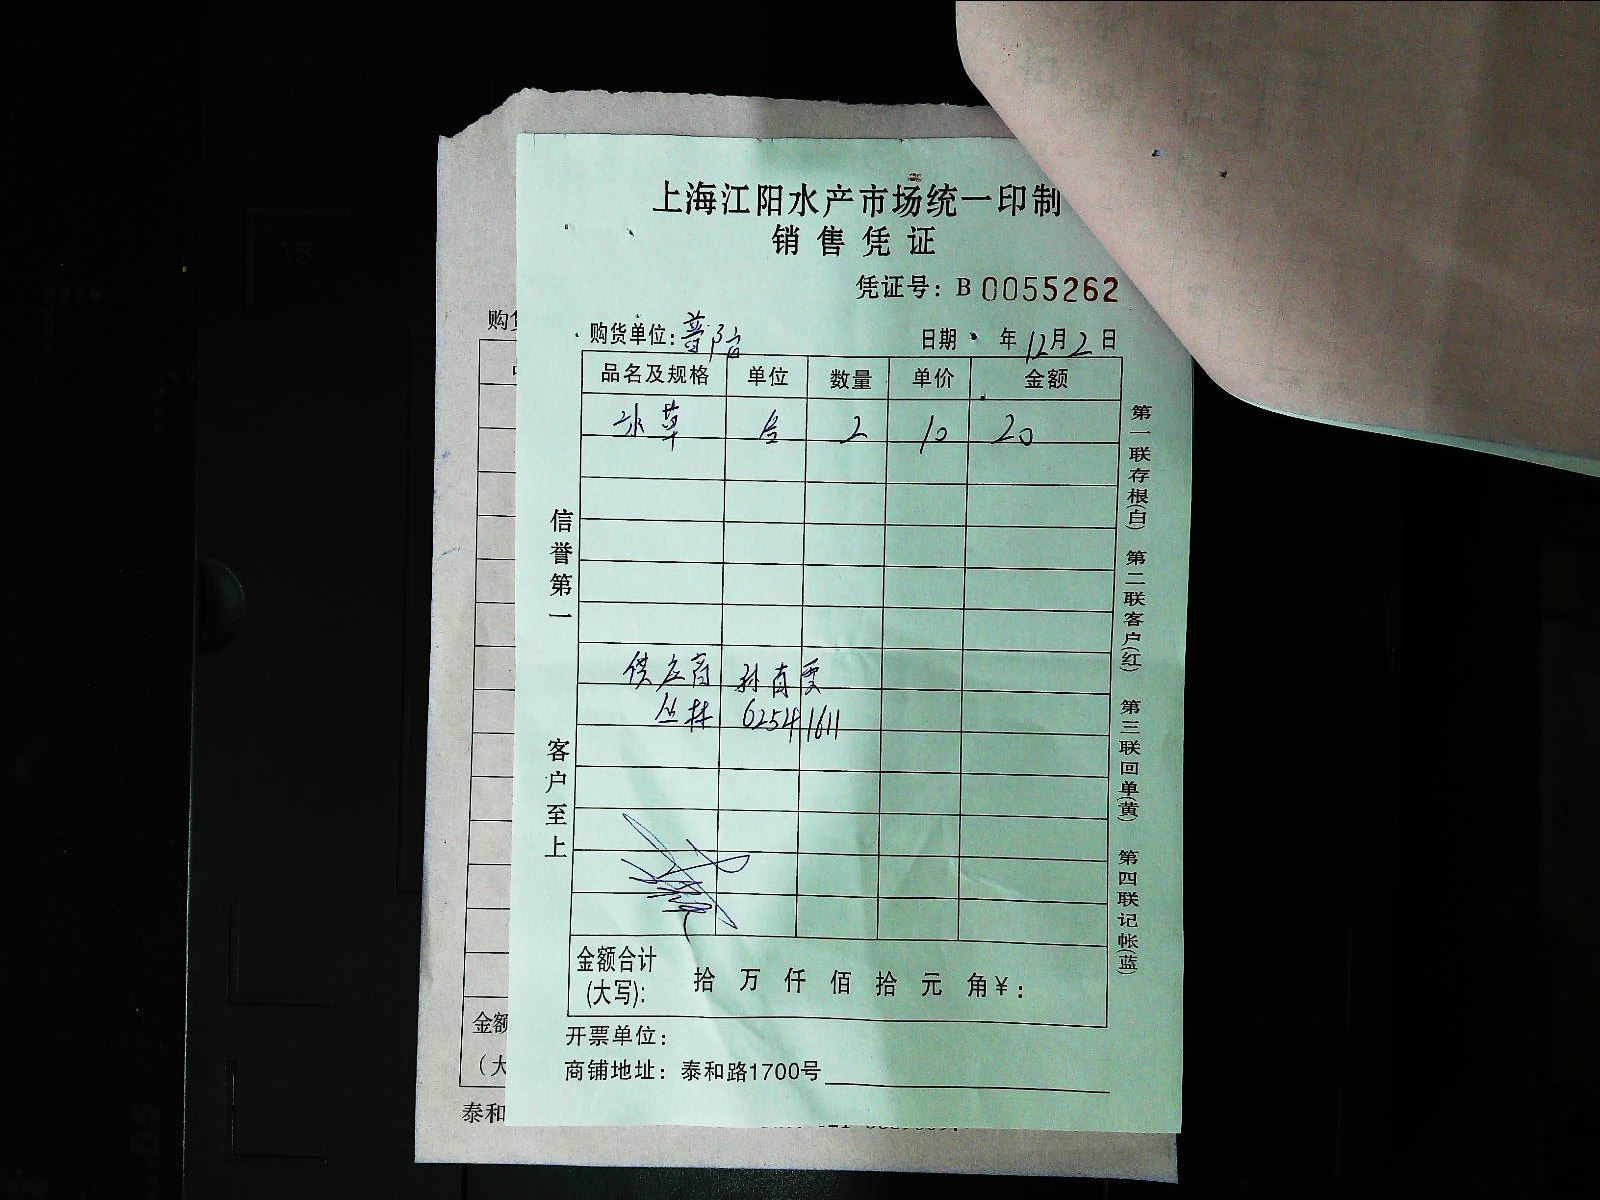 上海江阳水产市场统一印制
销售凭证
凭证号：B 0055262
购货单位：普陀 日期 年12月2日
品名及规格 单位 数量 单价 金额
冰草 合 2 10 20
供应商 孙育雯
丛林 62541611
信誉第一
客户至上
第一联存根(白) 第二联客户(红) 第三联回单(黄) 第四联记帐(蓝)
金额合计
(大写)： 拾 万 仟 佰 拾 元 角￥：
开票单位：
商铺地址：泰和路1700号
购
金额
(大
泰和